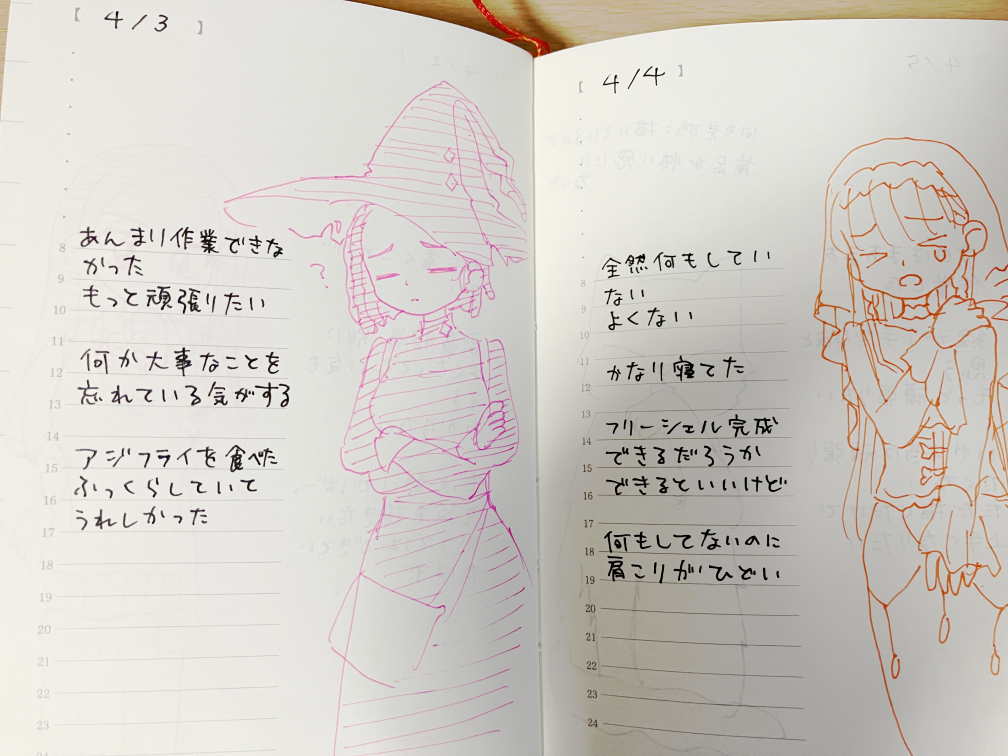 【 4/3 】
あんまり作業できな
かった
もっと頑張りたい
何か大事なことを
忘れている気がする
アジフライを食べた
ふっくらしていて
うれしかった
?
8
9
10
11
12
13
14
15
16
17
18
19
20
21
22
23
24
【 4/4 】
全然何もしてい
ない
よくない
かなり寝てた
フリーシェル完成
できるだろうか
できるといいけど
何もしてないのに
肩こりがひどい
8
9
10
11
12
13
14
15
16
17
18
19
20
21
22
23
24